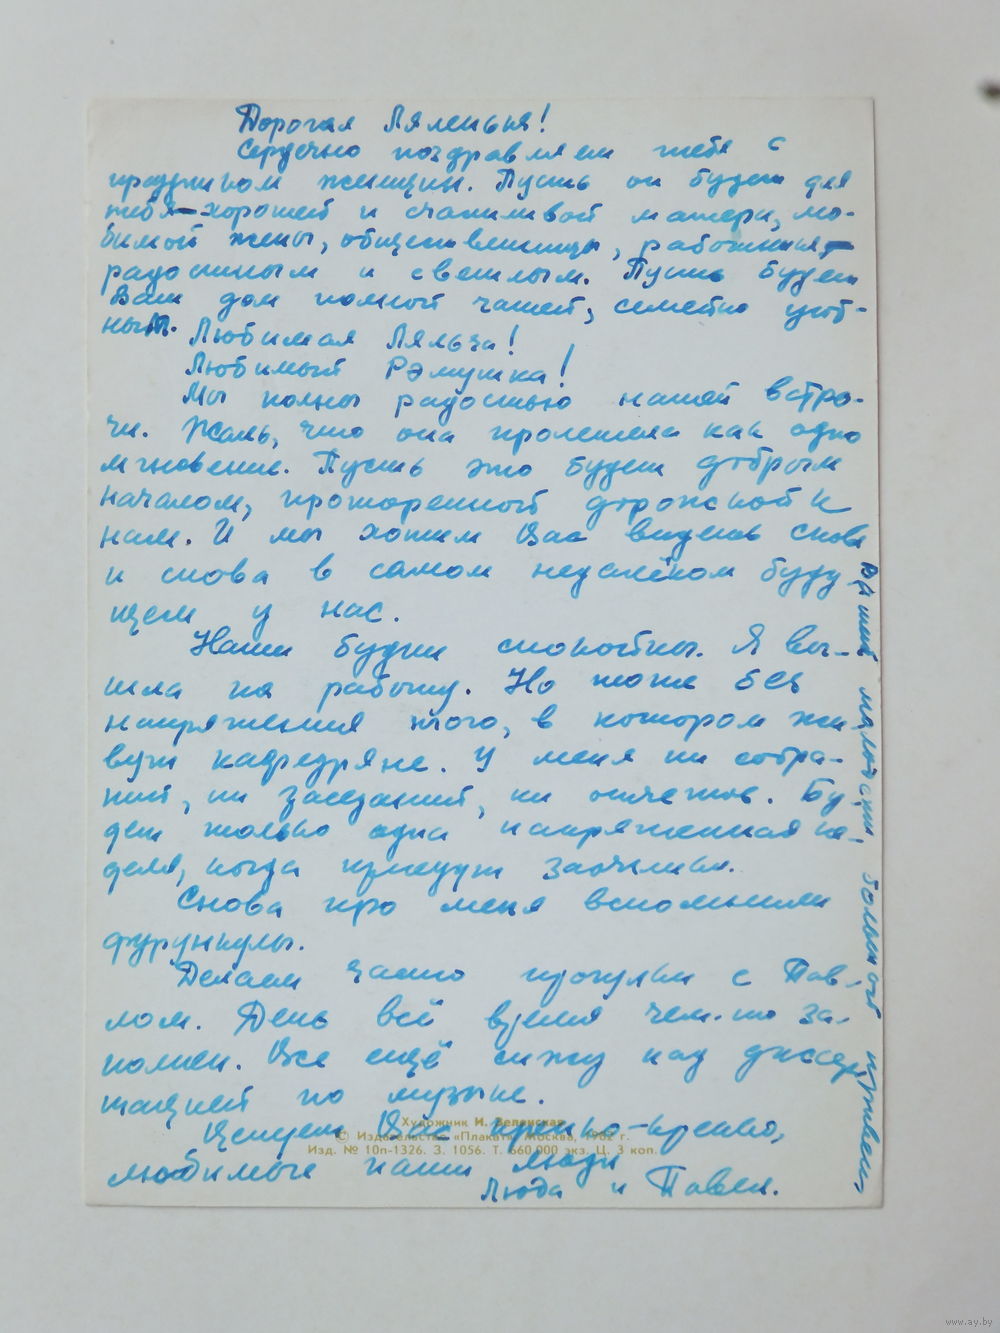 Дорогая Ляленька!
Сердечно поздравляем тебя с
праздником женщин. Пусть он будет для
тебя – хорошей и счастливой матери, лю-
бимой жены, общественницы, работницы –
радостным и светлым. Пусть будет
Ваш дом полной чашей, семейно уют-
ным.
Любимая Ляльча!
Любимый Рэмушка!
Мы полны радостью нашей встре-
чи. Жаль, что она пролетела как одно
мгновение. Пусть это будет добрым
началом, проторенной дорожкой к
нам. И мы хотим Вас видеть снова
и снова в самом недалёком буду
щем у нас.
Наши будни спокойны. Я вы-
шла на работу. Но тоже без
напряжения того, в котором жи
вут кафедряне. У меня ни собра-
ний, ни заседаний, ни отчетов. Бу-
дет только одна напряженная не-
деля, когда приедут заочники.
Снова про меня вспомнили
фурункулы.
Делаем часто прогулки с Пав-
лом. День всё время чем-то за-
полнен. Все ещё сижу над диссер
тацией по музыке.
Целуем Вас крепко-крепко,
любимые наши люди
Люда и Павел.
Вашим мальчикам большой привет.
Художник И. Зеленская
© Издательство «Плакат» Москва, 1982 г.
Изд. № 10п-1326. З. 1056. Т. 660.000 экз. Ц. 3 коп.
www.ay.by